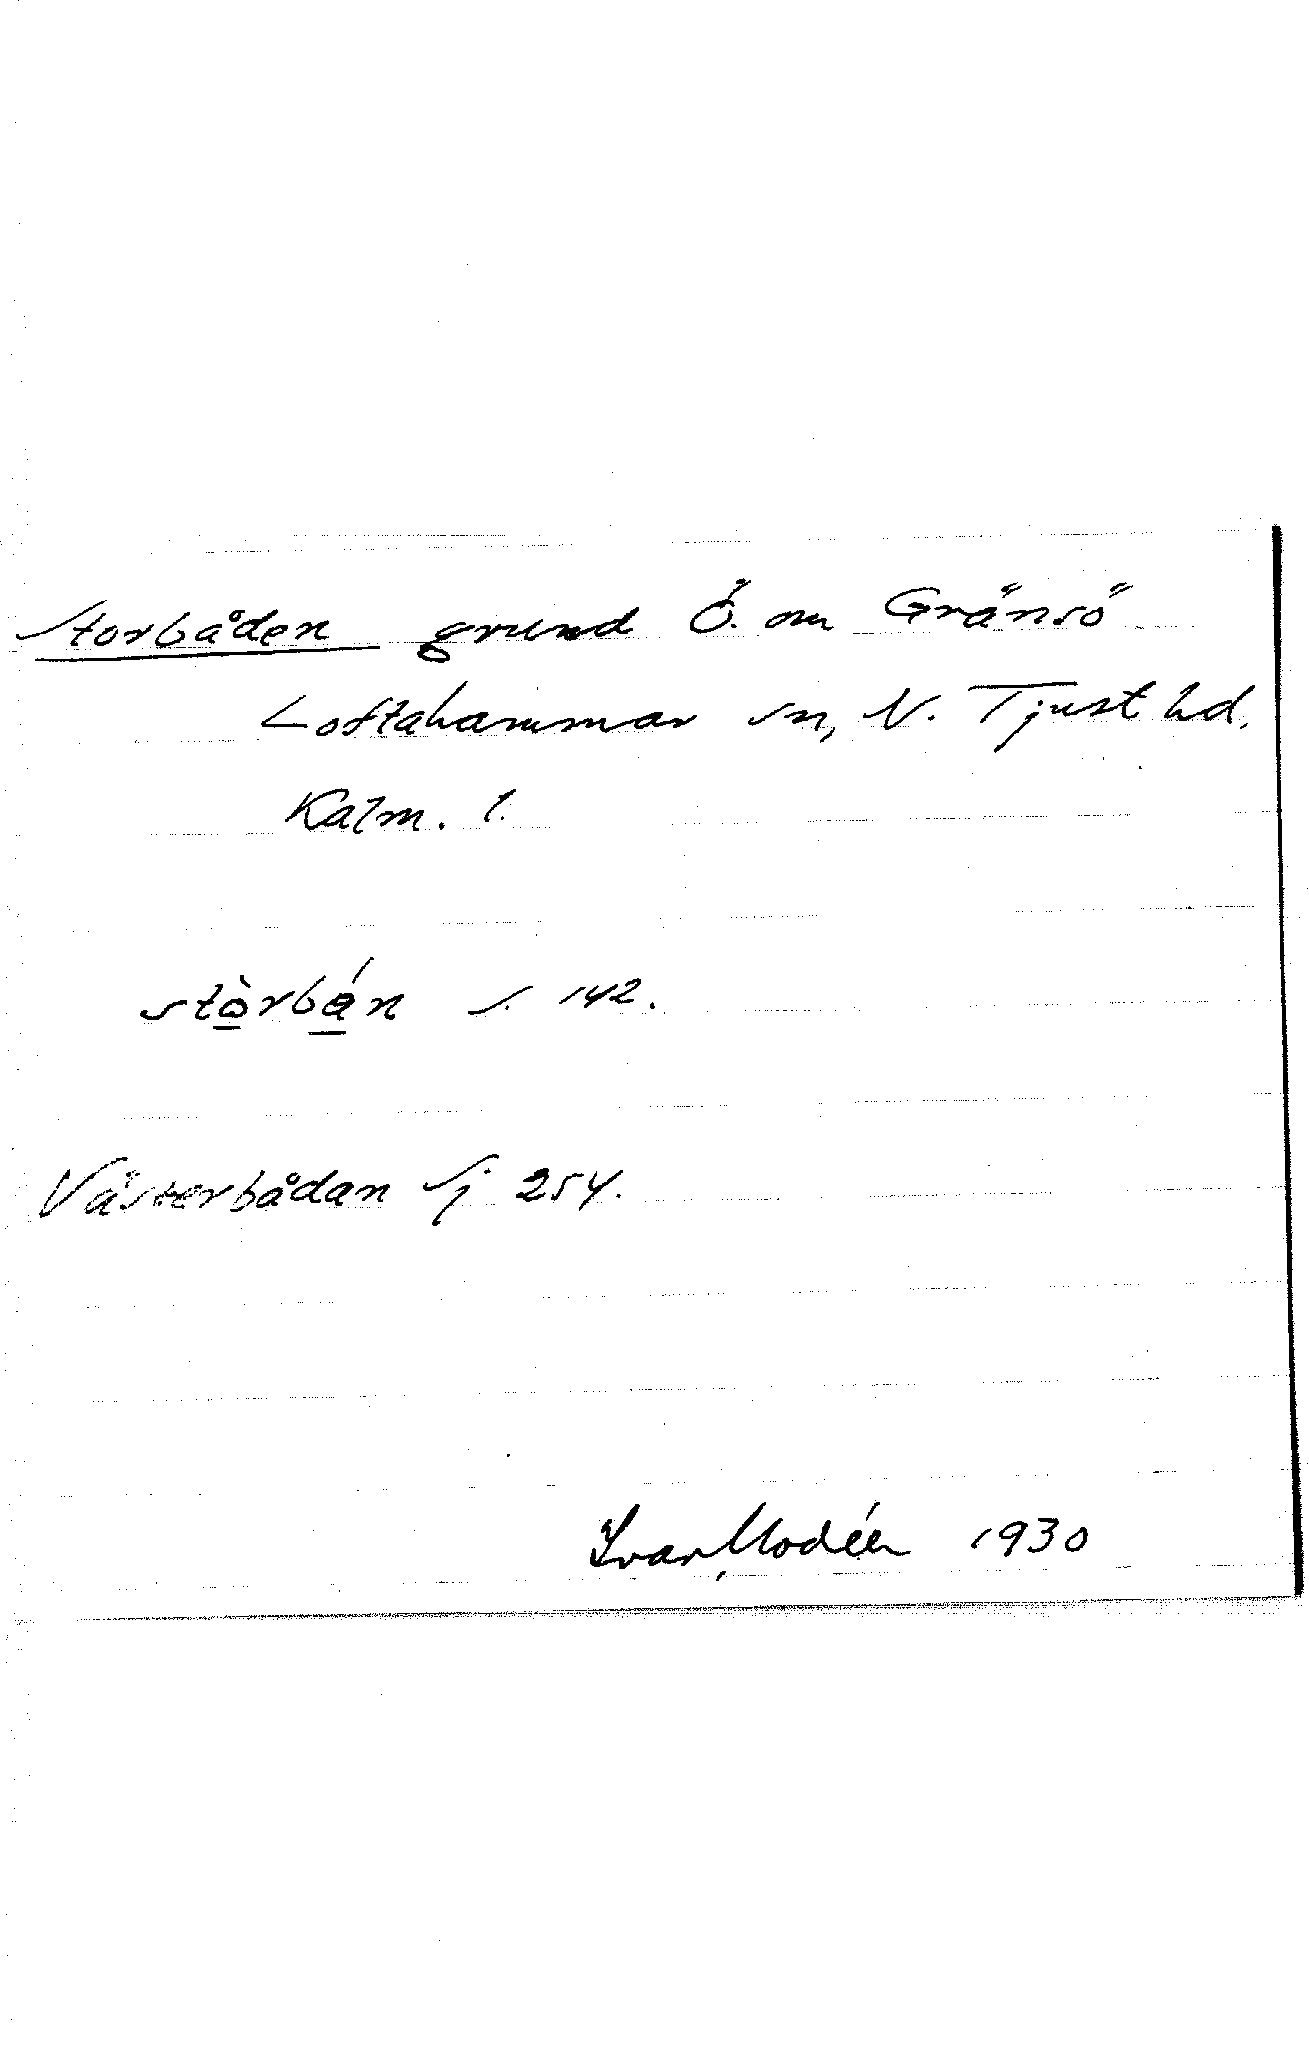 Storbåden grund Ö. om Gränsö
Loftahammar sn, N. Tjust hd.
Kalm. l.
stò̱rbá̱n s. 142.
Västerbådan Sj 254.
Ivar Modéer 1930